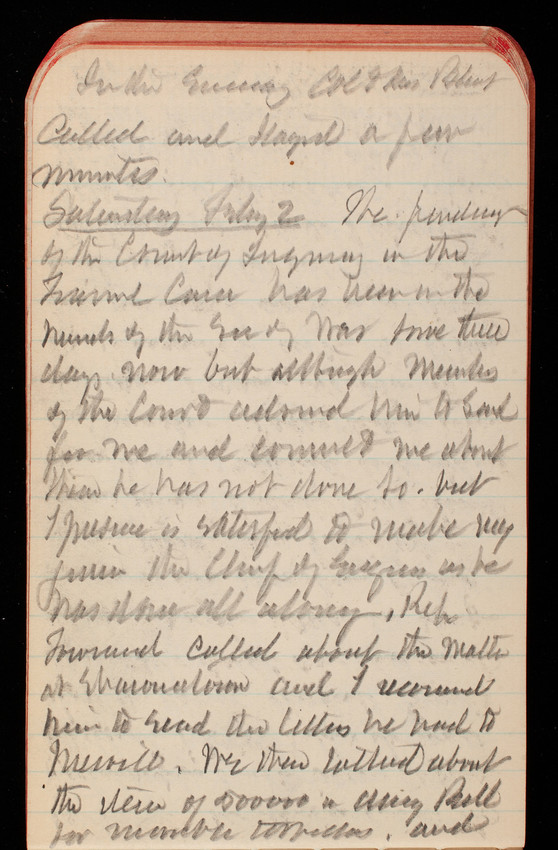 In the Evening Col & Mrs
Called and stayed a few
minutes.
Saturday Feby 2 The findings
of the Court of Inquiry in the
Case has been in the
hands of the Sec of War some three
days now but although Members
of the Court advised him to Send
for me and consult me about
them he has not done so. but
I presume is satisfied to make my
junior the Chief of Engrs as he
has done all along, Rep
Townsend called about the Matter
at and I
him to send the letters he had to
Merrill. We then talked about
the item of 500000 in Bill
for movable torpedoes, and